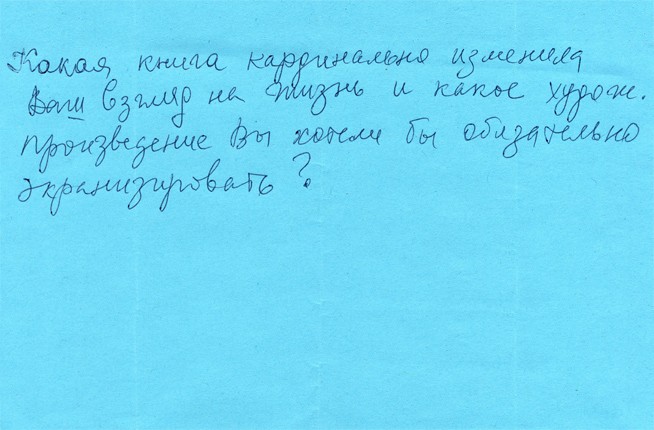 Какая книга кардинально изменила
Ваш взгляд на жизнь и какое худож.
произведение Вы хотели бы обязательно
экранизировать?